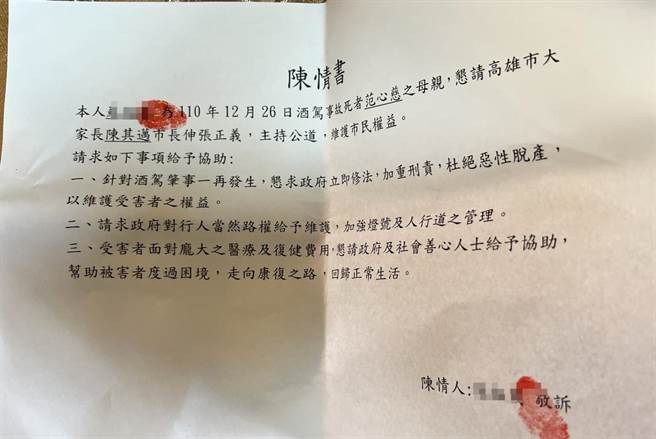 陳情書
本人 為110年12月26日酒駕事故死者范心慈之母親，懇請高雄市大
家長陳其邁市長伸張正義，主持公道，維護市民權益。
請求如下事項給予協助：
一、針對酒駕肇事一再發生，懇求政府立即修法，加重刑責，杜絕惡性脫產，
以維護受害者之權益。
二、請求政府對行人當然路權給予維護，加強燈號及人行道之管理。
三、受害者面對龐大之醫療及復健費用，懇請政府及社會善心人士給予協助，
幫助被害者度過困境，走向康復之路，回歸正常生活。
陳情人： 敬訴